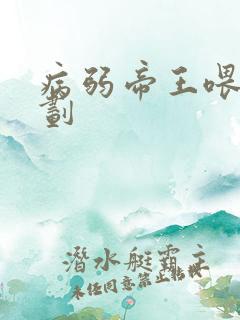 病弱帝王喂
劃
潛水艇霸主
未经同意禁止转载